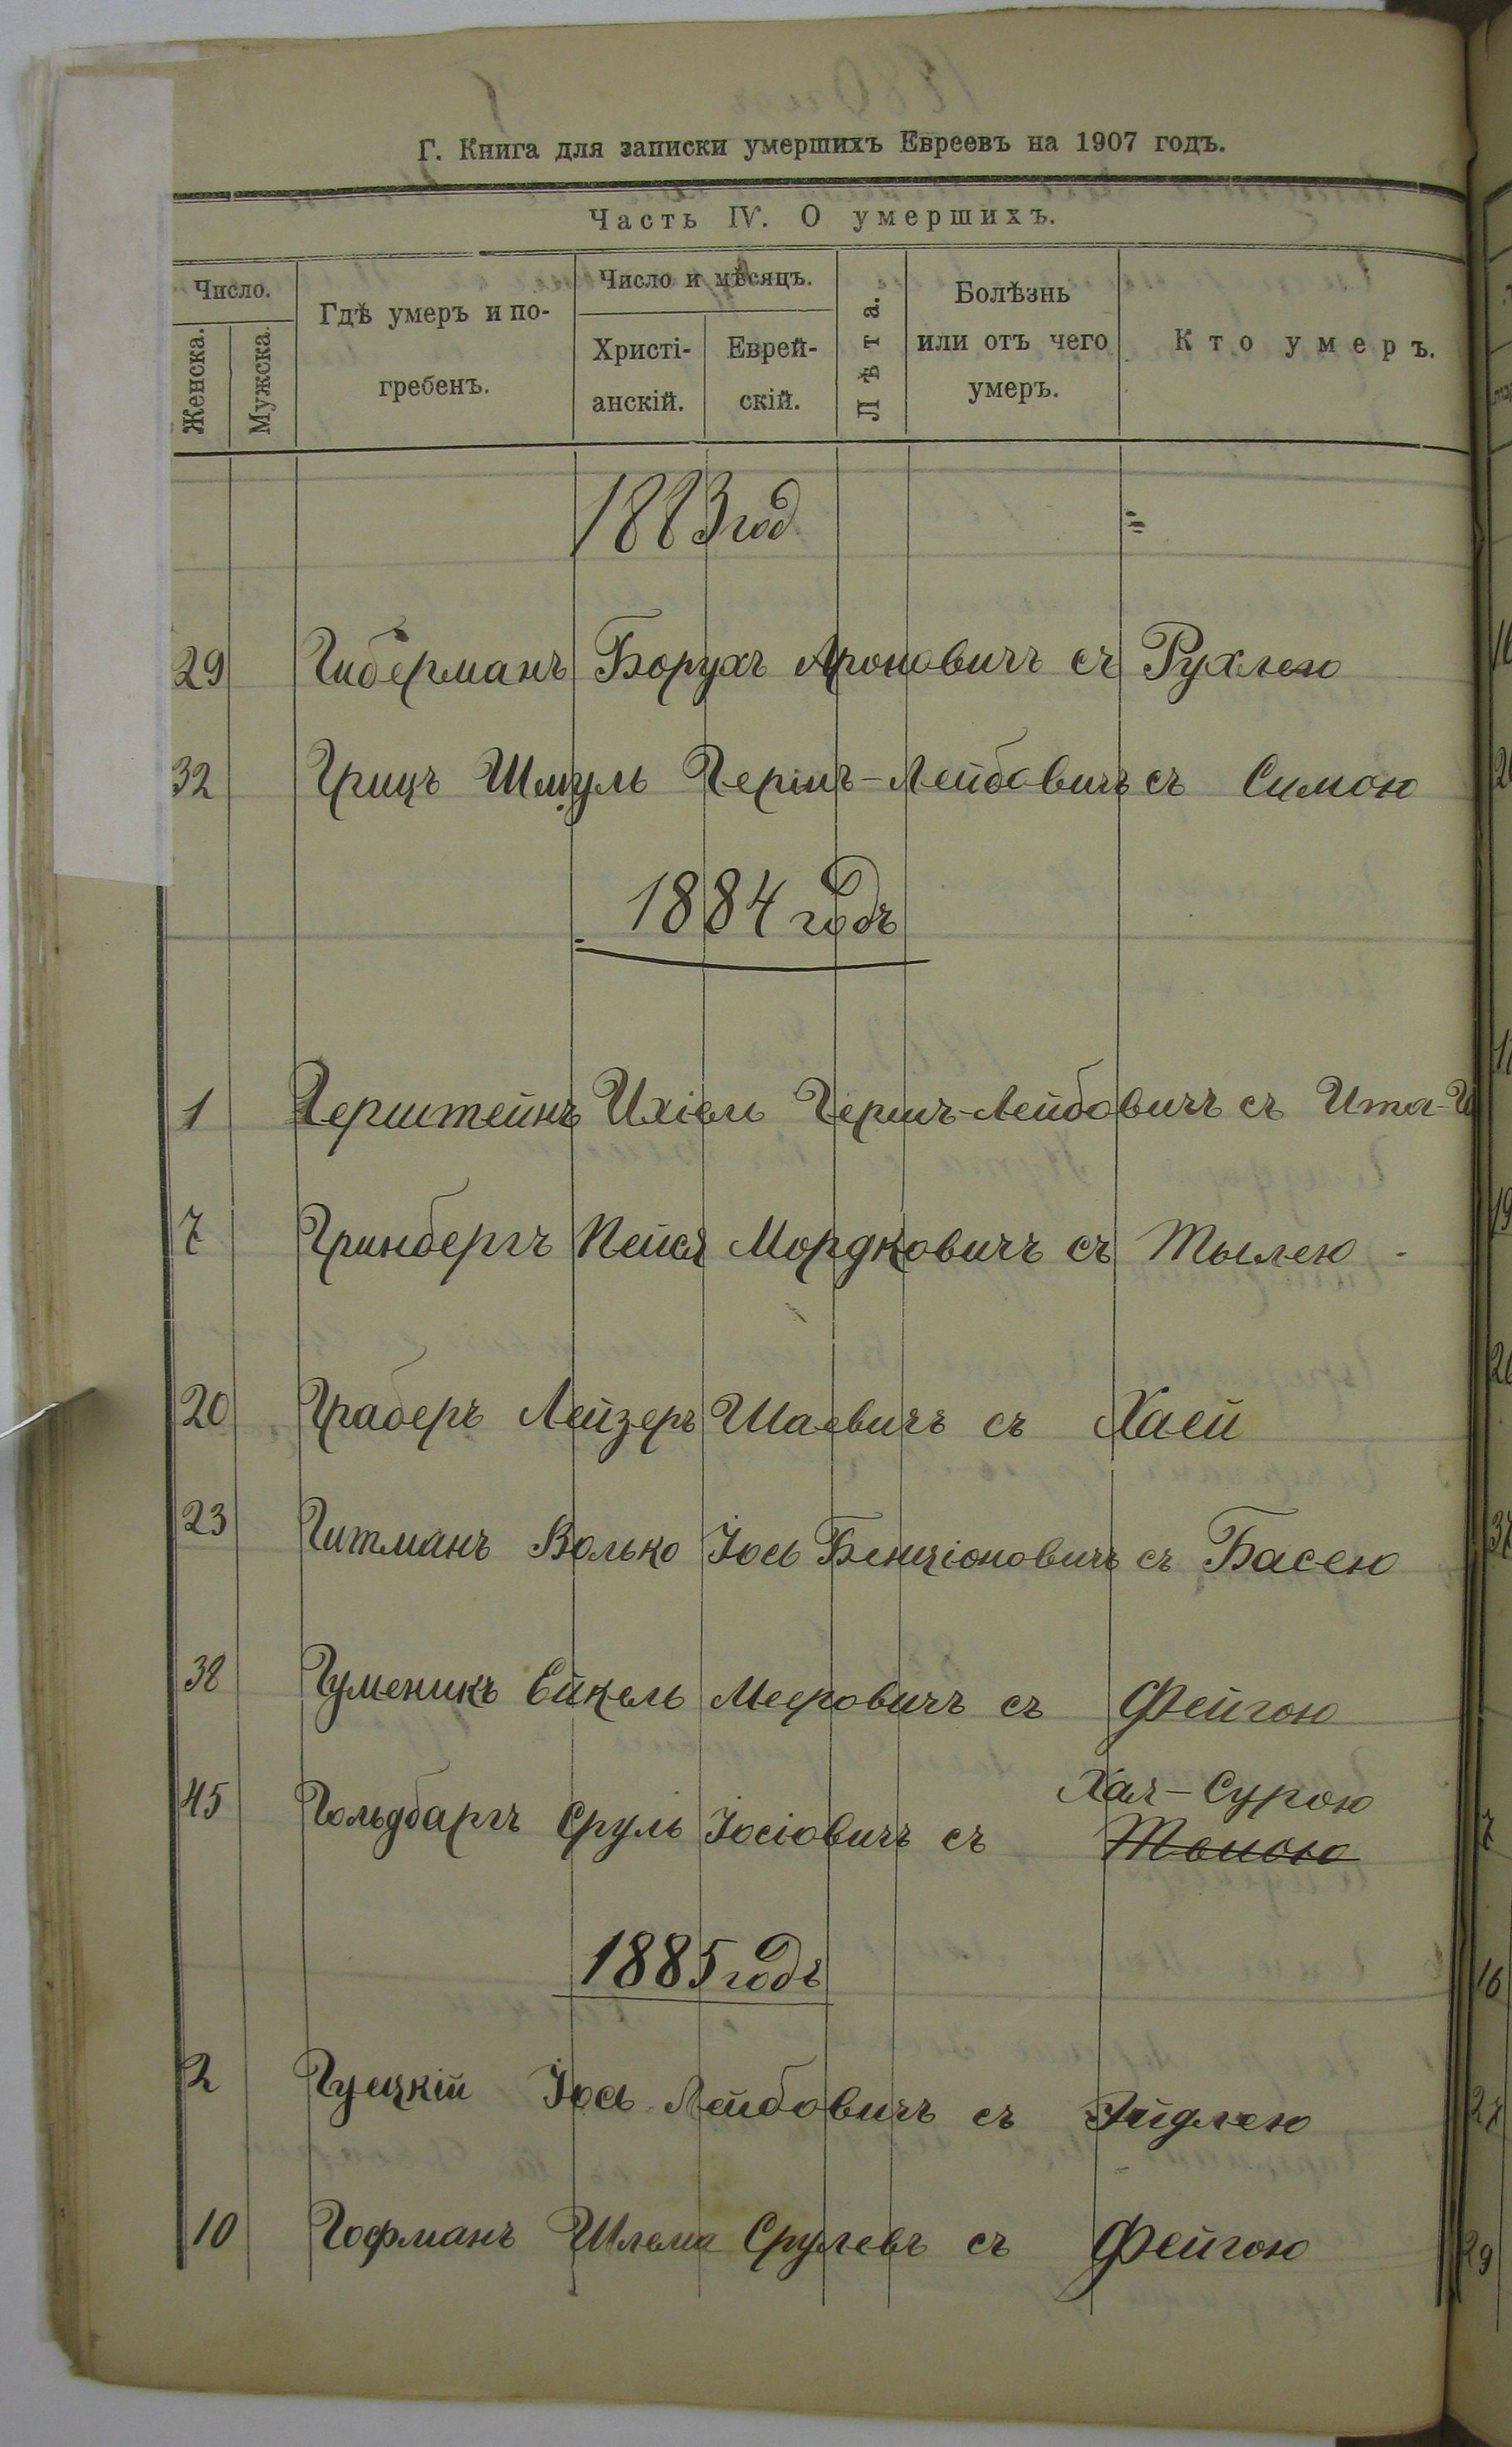 Г. Книга для записки умершихъ Евреевъ на 1907 годъ.
Часть IV. О умершихъ.
Число.
Женска.
Мужска.
Гдѣ умеръ и по-
гребенъ.
Число и мѣсяцъ.
Христі-
анскій.
Еврей-
скій.
Лѣта.
Болѣзнь
или отъ чего
умеръ.
Кто умеръ.
1883 год
29 Гиберманъ Борухъ Ароновичъ съ Рухлею
32 Грицъ Шмуль Гершъ-Лейбовичъ съ Симою
1884 годъ
1 Герштейнъ Ихіель Гершъ-Лейбовичъ съ Ита-
7 Гринбергъ Пейся Мордковичъ съ Тылею
20 Граберъ Лейзеръ Шаевичъ съ Хаей
23 Гитманъ Волько Іось Бенціоновичъ съ Басею
38 Гуменикъ Ейкель Мееровичъ съ Фейгою
Хая-Сурою
45 Гольдбаргъ Сруль Іосіовичъ съ
1885 годъ
2 Гуцкій Іось Лейбовичъ съ Эйдлею
10 Гофманъ Шлема Срулевъ съ Фейгою